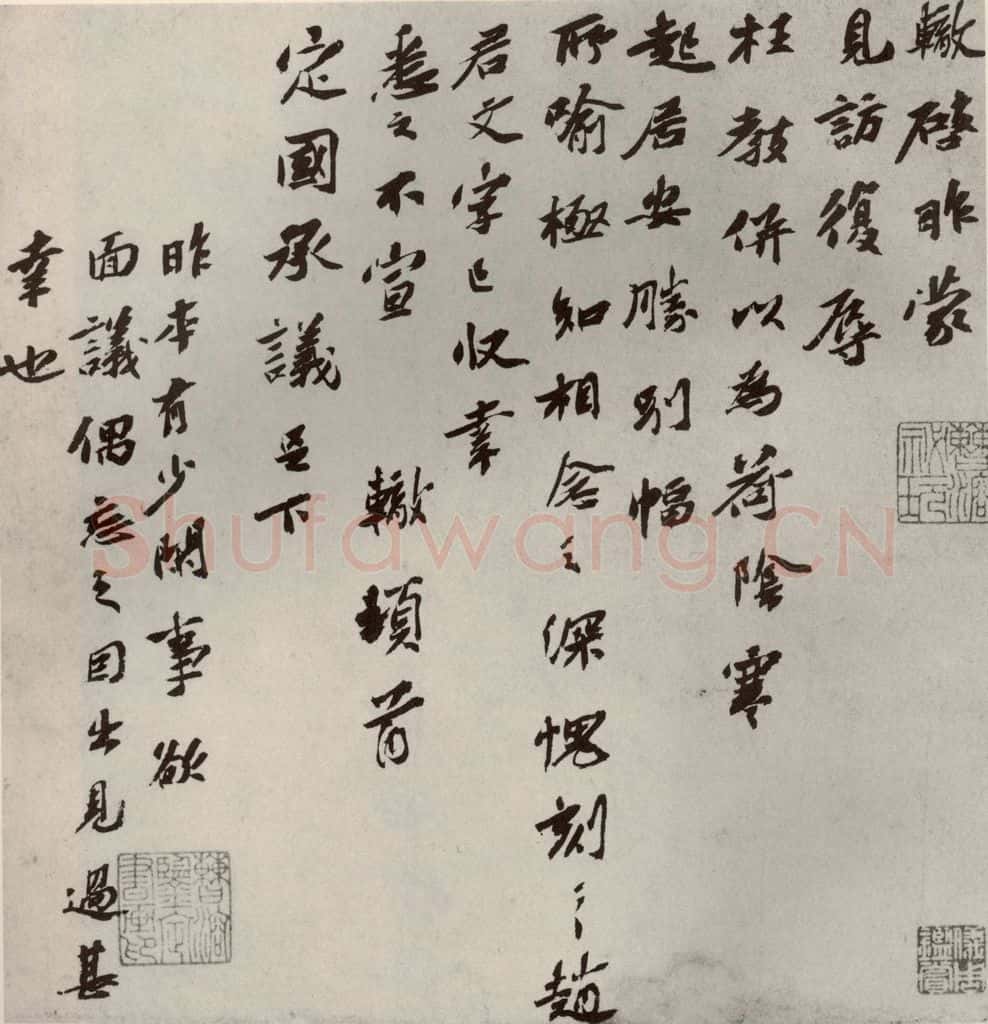 轍啓昨蒙
見訪復辱
枉教併以為荷陰寒
起居安勝別幅
所喻極知相念之深愧刻々趙
君文字已収幸
悉之不宣 轍頓首
定國承議足下
昨本有少閑事欲
面議偶忘之因出見過甚
幸也
Shufawang.CN